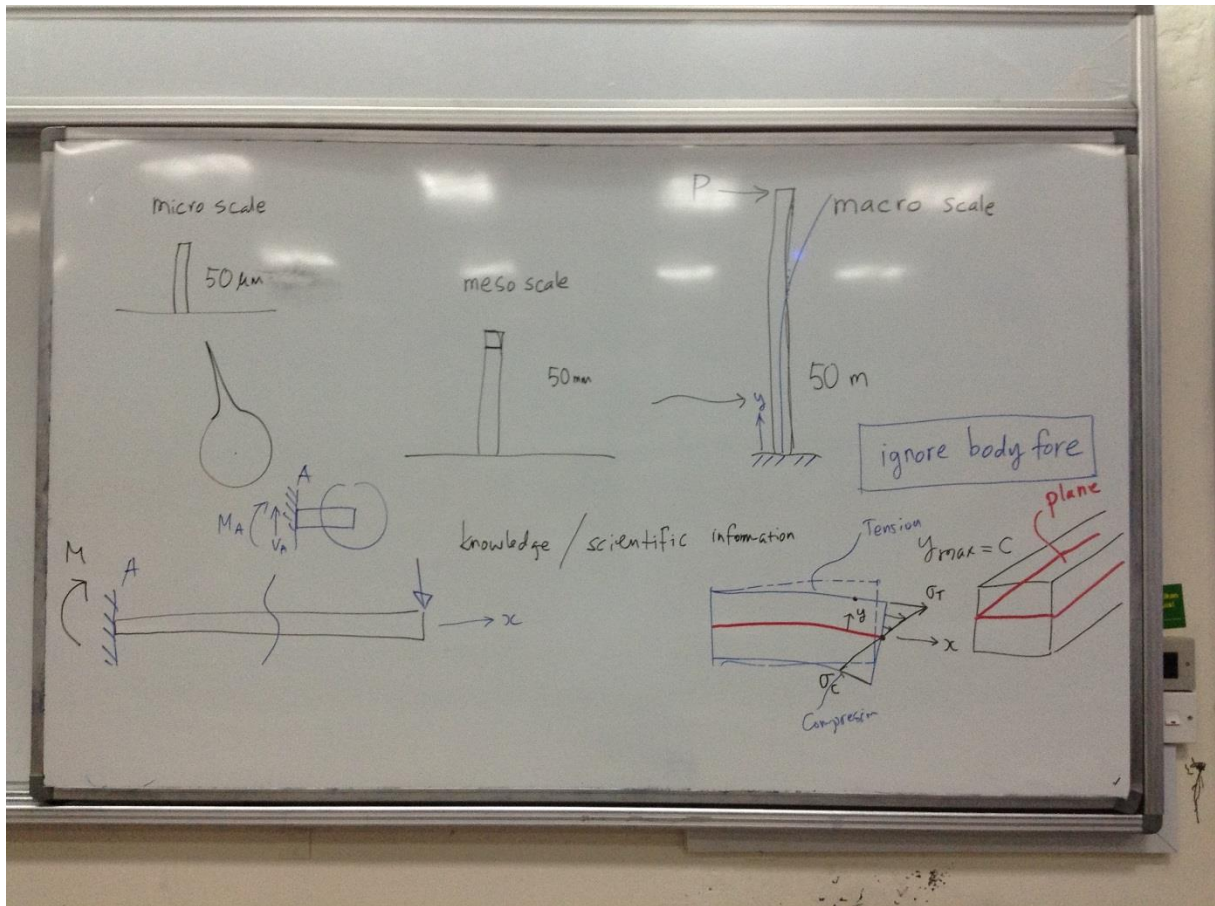 micro scale
50 μm
meso scale
50 mm
P
macro scale
50 m
y
ignore body fore
A
M_A
V_A
knowledge / scientific information
M
A
x
Tension
y_max = C
plane
σ_T
y
x
σ_c
Compresim